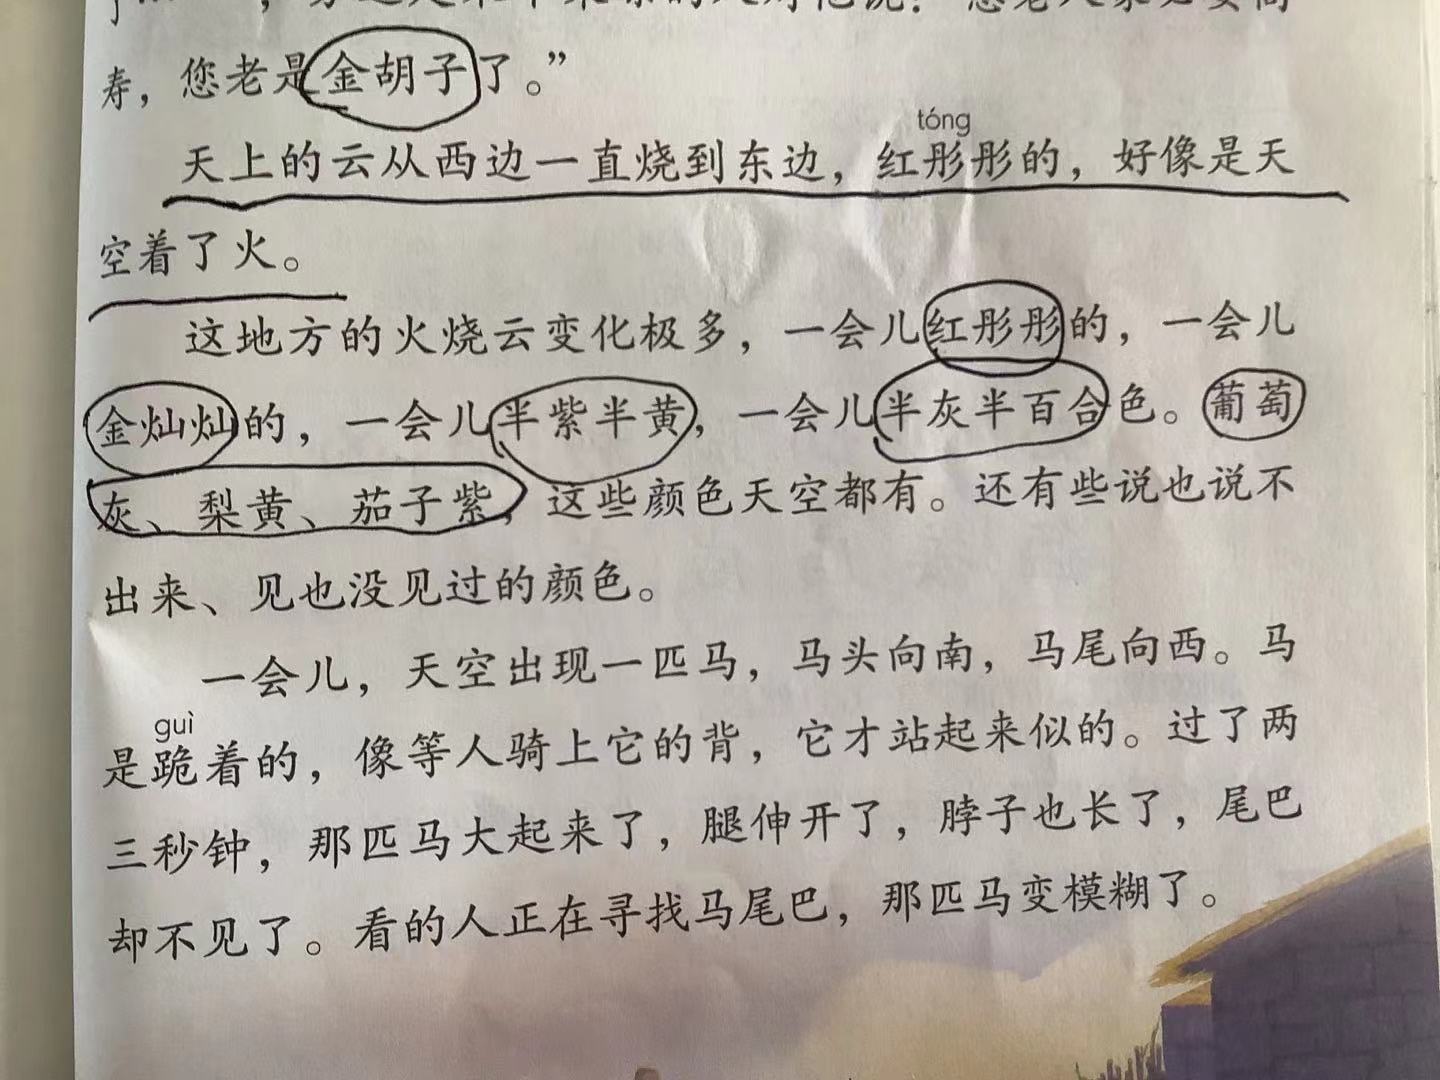 寿，您老是金胡子了。”
tóng
天上的云从西边一直烧到东边，红彤彤的，好像是天
空着了火。
这地方的火烧云变化极多，一会儿红彤彤的，一会儿
金灿灿的，一会儿半紫半黄，一会儿半灰半百合色。葡萄
灰、梨黄、茄子紫，这些颜色天空都有。还有些说也说不
出来、见也没见过的颜色。
一会儿，天空出现一匹马，马头向南，马尾向西。马
guì
是跪着的，像等人骑上它的背，它才站起来似的。过了两
三秒钟，那匹马大起来了，腿伸开了，脖子也长了，尾巴
却不见了。看的人正在寻找马尾巴，那匹马变模糊了。